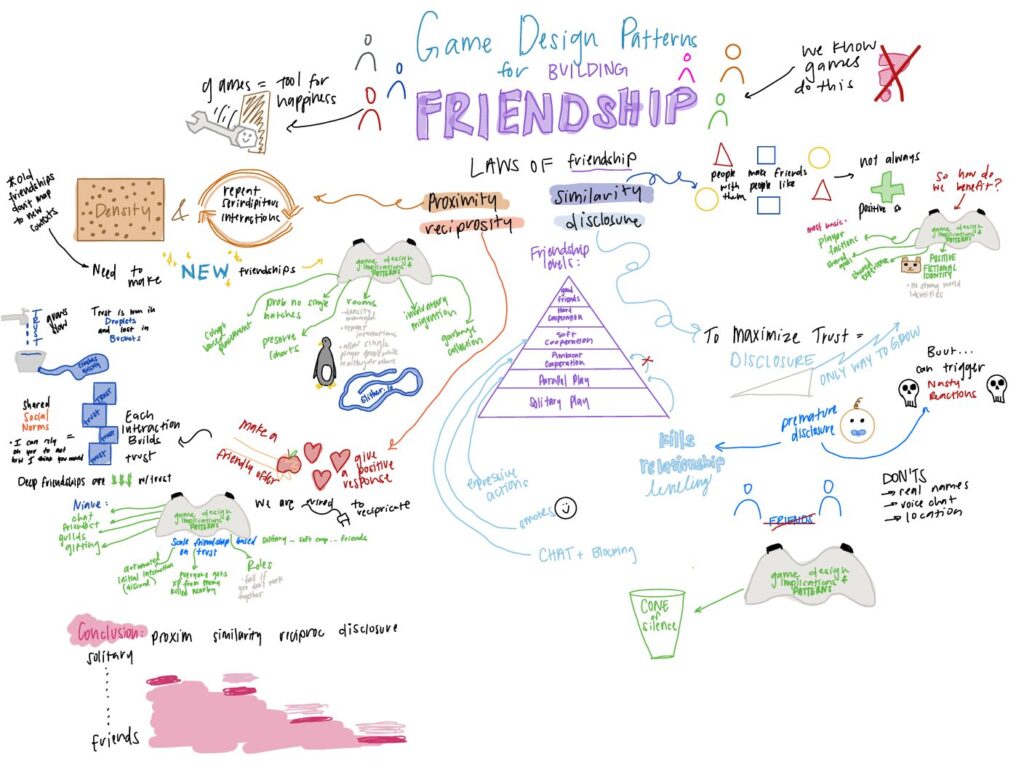 Game Design Patterns
for BUILDING
FRIENDSHIP
games = tool for
happiness
we know
games
do this
LAWS OF friendship
Proximity
reciprosity
similarity
disclosure
*old
friendships
don't map
to new
contexts
Density
&
repeat
serindipitous
interactions
Need to
make
NEW
friendships
game design
implications &
PATTERNS
cohort
based
placement
prob no single
matches
preserve
cohorts
rooms
- density
managed
- repeat
interactions
involuntary
migration
garbage
collection
slither.io
people
with
them
make friends
people like
not always
positive
so how do
we benefit?
most basic:
player
factions
shared
goal
shared
experience
game design
implications &
PATTERNS
POSITIVE
FICTIONAL
IDENTITY
identities
Friendship
levels:
good
friends
Hard
Cooperation
Soft
Cooperation
Ambient
Cooperation
Parallel Play
Solitary Play
expressive
actions
emotes
CHAT + Blocking
To Maximize Trust =
DISCLOSURE
ONLY WAY TO GROW
Buut...
can trigger
Nasty
Reactions
premature
disclosure
kills
relationship
leveling
FRIENDS
DON'TS
→ real names
→ voice chat
→ location
game design
implications &
PATTERNS
CONE
of
silence
TRUST
grows
slow
Trust is won in
Droplets
and lost in
Buckets
Shared
Social
Norms
=
TRUST
trust
trust
trust
Each
Interaction
Builds
trust
Deep friendships are $$$ w/trust
make a
friendly offer
give
a positive
response
we are
to recipricate
Ninve:
chat
friendlist
guilds
gifting
game design
implications &
PATTERNS
Scale friendship based
on trust
solitary... soft coop... friends
automated
initial interaction
(discord)
Everyone gets
XP from enemy
killed nearby
Roles
- fail if
you don't work
together
Conclusion:
proxim similarity riciproc disclosure
solitary
friends